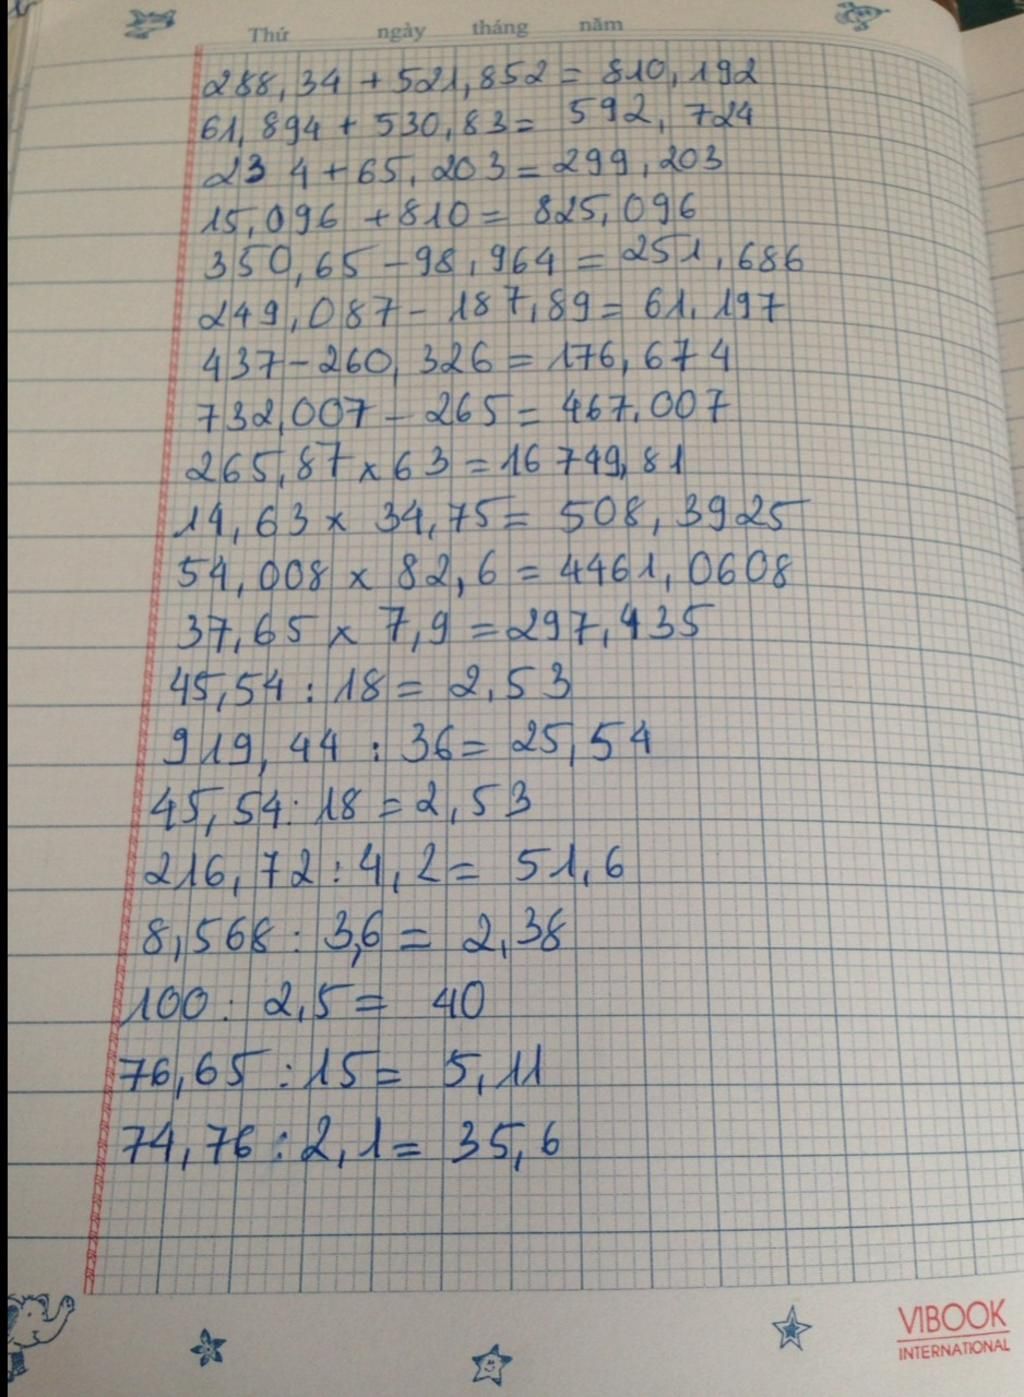 Thứ ngày tháng năm
288,34 + 521,852 = 810,192
61,894 + 530,83 = 592,724
234 + 65,203 = 299,203
15,096 + 810 = 825,096
350,65 - 98,964 = 251,686
249,087 - 187,89 = 61,197
437 - 260,326 = 176,674
732,007 - 265 = 467,007
265,87 x 63 = 16 749,81
14,63 x 34,75 = 508,3925
54,008 x 82,6 = 4461,0608
37,65 x 7,9 = 297,435
45,54 : 18 = 2,53
919,44 : 36 = 25,54
45,54 : 18 = 2,53
216,72 : 4,2 = 51,6
8,568 : 3,6 = 2,38
100 : 2,5 = 40
76,65 : 15 = 5,11
74,76 : 2,1 = 35,6
VIBOOK
INTERNATIONAL